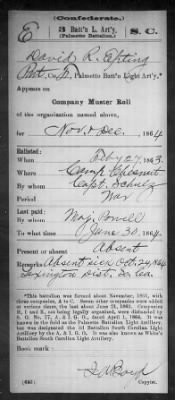 (Confederate.)
E 3 Batt'n L. Art'y. S. C.
(Palmetto Battalion.)
David R. Epting
Pvt, Co. , Palmetto Batt'n Light Art'y.*
Appears on
Company Muster Roll
of the organization named above,
for Nov. & Dec., 1864.
Enlisted:
When Feby 27, 1863.
Where Camp Chesnut
By whom Capt. Schulz
Period War
Last paid:
By whom Maj. Powell
To what time June 30, 1864.
Present or absent Absent
Remarks: Absent sick Oct. 24, 1864
Lexington Dist., So. Ca.
*This battalion was formed about November, 1861, with
three companies, A to C. Seven other companies were added
at various times, the last one June 21, 1862. Companies
H, I and K, not being legally organized, were disbanded by
S. O. No. 77, A. & I. G. O., dated April 1, 1864. It was
known as the Palmetto Battalion Light Artillery,
but was designated the 3d Battalion South Carolina Light
Artillery by the A. & I. G. O. It is also known as White's
Battalion South Carolina Light Artillery.
Book mark:
(642)
Copyist.